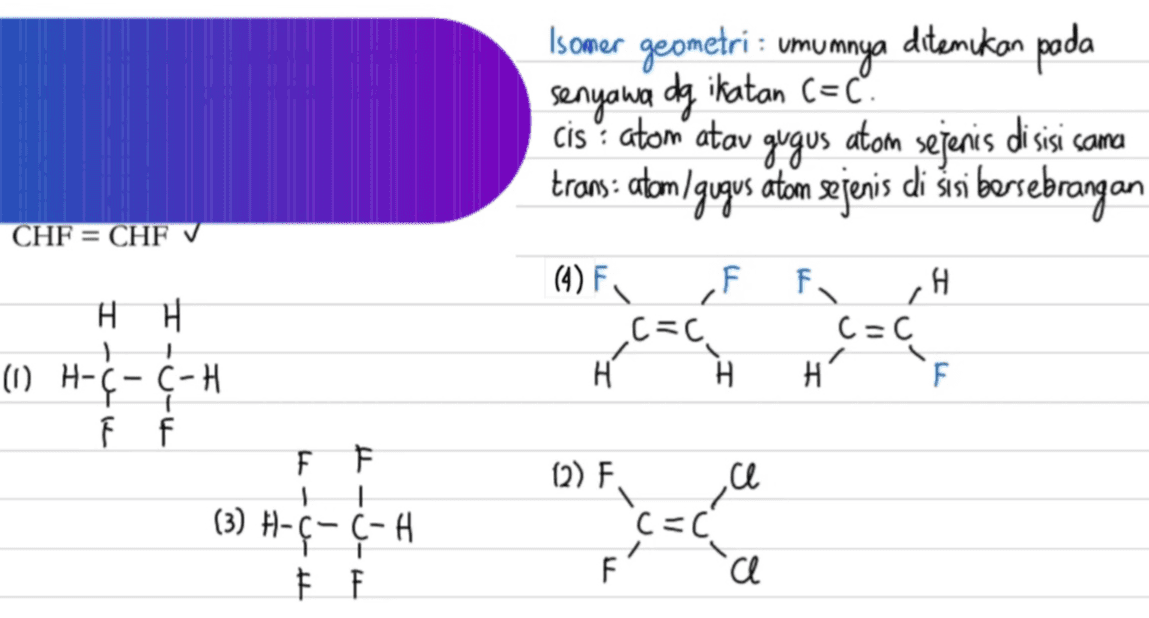 Isomer geometri : umumnya ditemukan pada
senyawa dg ikatan C=C.
cis : atom atau gugus atom sejenis di sisi sama
trans: atom/gugus atom sejenis di sisi bersebrangan
CHF = CHF ✓
(4) F F F H
C=C C=C
H H H F
H H
(1) H-C-C-H
F F
F F
(3) H-C-C-H
F F
(2) F Cl
C=C
F Cl